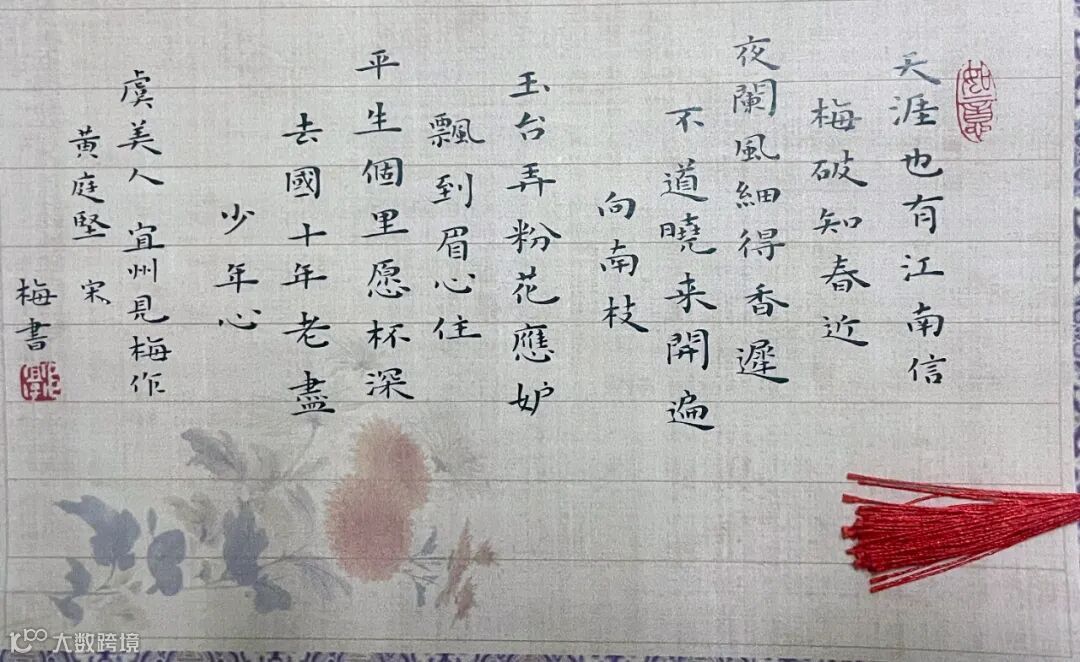 如意
天涯也有江南信
梅破知春近
夜闌風細得香遲
不道曉来開遍
向南枝
玉台弄粉花應妒
飄到眉心住
平生個里愿杯深
去國十年老盡
少年心
虞美人 宜州見梅作
黃庭堅 宋
梅書
大数跨境